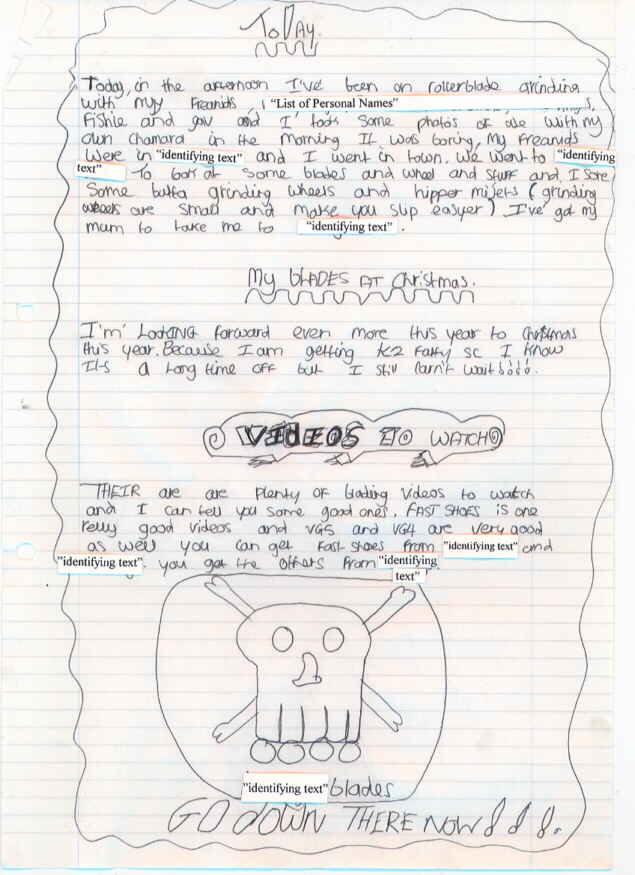 ToDAy.
Today, in the afternoon I've been on rollerblade grinding
with my Freanids, "List of Personal Names"
Fishie and gav and I took some photos of me with my
own Chamara in the morning It was boring, My Freanids
were in "identifying text" and I went in town. We went to "identifying
text" To look at Some blades and wheel and stuff and I Sore
Some butta grinding wheels and hipper misers (grinding
wheels are small and make you slip easyer). I've got my
mum to take me to "identifying text".
My bLADES AT Christmas.
I'm LOOKING forward even more this year to Christmas
this year. Because I am getting K2 Fatty sc I know
It's a long time off but I still carn't wait!!!!.
VIdEOS TO WATCH
THEIR are are Plenty OF blading videos to watch
and I can tell you some good ones. FAST SHOES is one
relly good videos and VG5 and VG4 are very good
as well you can get Fast Shoes From "identifying text" and
"identifying text". you get the others From "identifying
text"
"identifying text" blades
GO dOWN THERE NOW!!!.